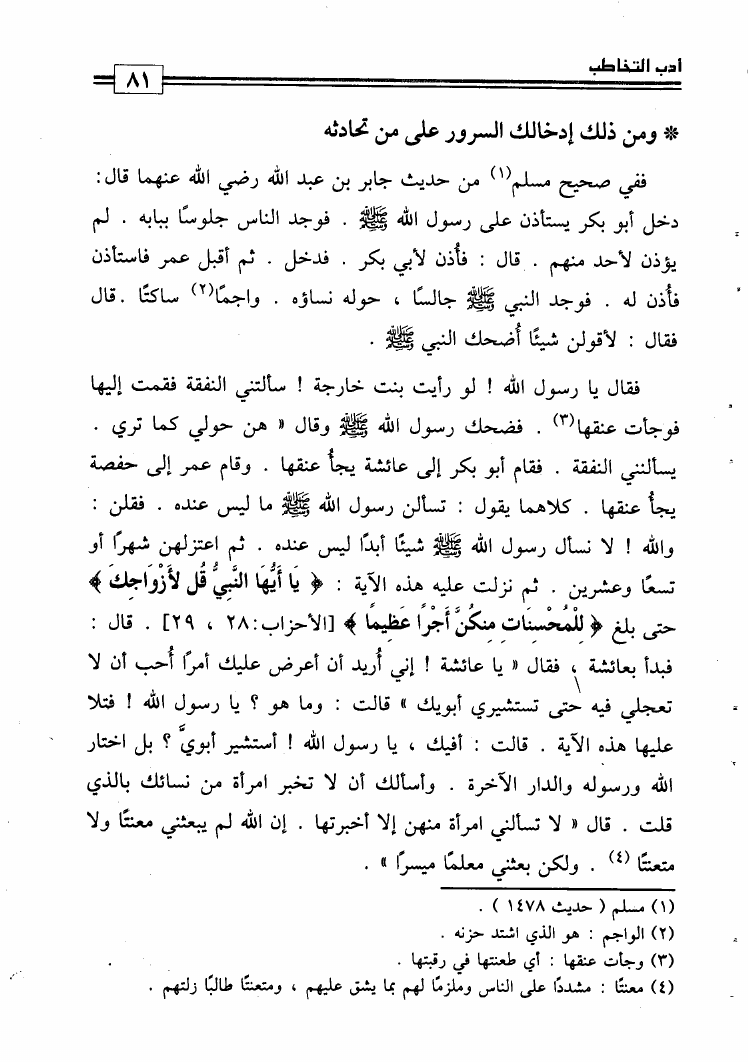 أدب التخاطب
٨١
* ومن ذلك إدخالك السرور على من تحادثه
ففي صحيح مسلم(١) من حديث جابر بن عبد الله رضي الله عنهما قال:
دخل أبو بكر يستأذن على رسول الله ﷺ . فوجد الناس جلوسًا ببابه . لم
يؤذن لأحد منهم . قال : فأُذن لأبي بكر . فدخل . ثم أقبل عمر فاستأذن
فأُذن له . فوجد النبي ﷺ جالسًا ، حوله نساؤه . واجمًا(٢) ساكتًا . قال
فقال : لأقولن شيئًا أُضحك النبي ﷺ .
فقال يا رسول الله ! لو رأيت بنت خارجة ! سألتني النفقة فقمت إليها
فوجأت عنقها(٣) . فضحك رسول الله ﷺ وقال « هن حولي كما تري .
يسألنني النفقة . فقام أبو بكر إلى عائشة يجأُ عنقها . وقام عمر إلى حفصة
يجأُ عنقها . كلاهما يقول : تسألن رسول الله ﷺ ما ليس عنده . فقلن :
والله ! لا نسأل رسول الله ﷺ شيئًا أبدًا ليس عنده . ثم اعتزلهن شهرًا أو
تسعًا وعشرين . ثم نزلت عليه هذه الآية : ﴿ يَا أَيُّهَا النَّبِيُّ قُل لأَزْوَاجِكَ ﴾
حتى بلغ ﴿ لِلْمُحْسِنَاتِ مِنكُنَّ أَجْرًا عَظِيمًا ﴾ [الأحزاب:٢٨ ، ٢٩] . قال :
فبدأ بعائشة ، فقال « يا عائشة ! إني أُريد أن أعرض عليك أمرًا أُحب أن لا
تعجلي فيه حتى تستشيري أبويك » قالت : وما هو ؟ يا رسول الله ! فتلا
عليها هذه الآية . قالت : أفيك ، يا رسول الله ! أستشير أبويَّ ؟ بل اختار
الله ورسوله والدار الآخرة . وأسألك أن لا تخبر امرأة من نسائك بالذي
قلت . قال « لا تسألني امرأة منهن إلا أخبرتها . إن الله لم يبعثني معنتًا ولا
متعنتًا (٤) . ولكن بعثني معلمًا ميسرًا » .
(١) مسلم ( حديث ١٤٧٨ ) .
(٢) الواجم : هو الذي اشتد حزنه .
(٣) وجأت عنقها : أي طعنتها في رقبتها .
(٤) معنتًا : مشددًا على الناس وملزمًا لهم بما يشق عليهم ، ومتعنتًا طالبًا زلتهم .